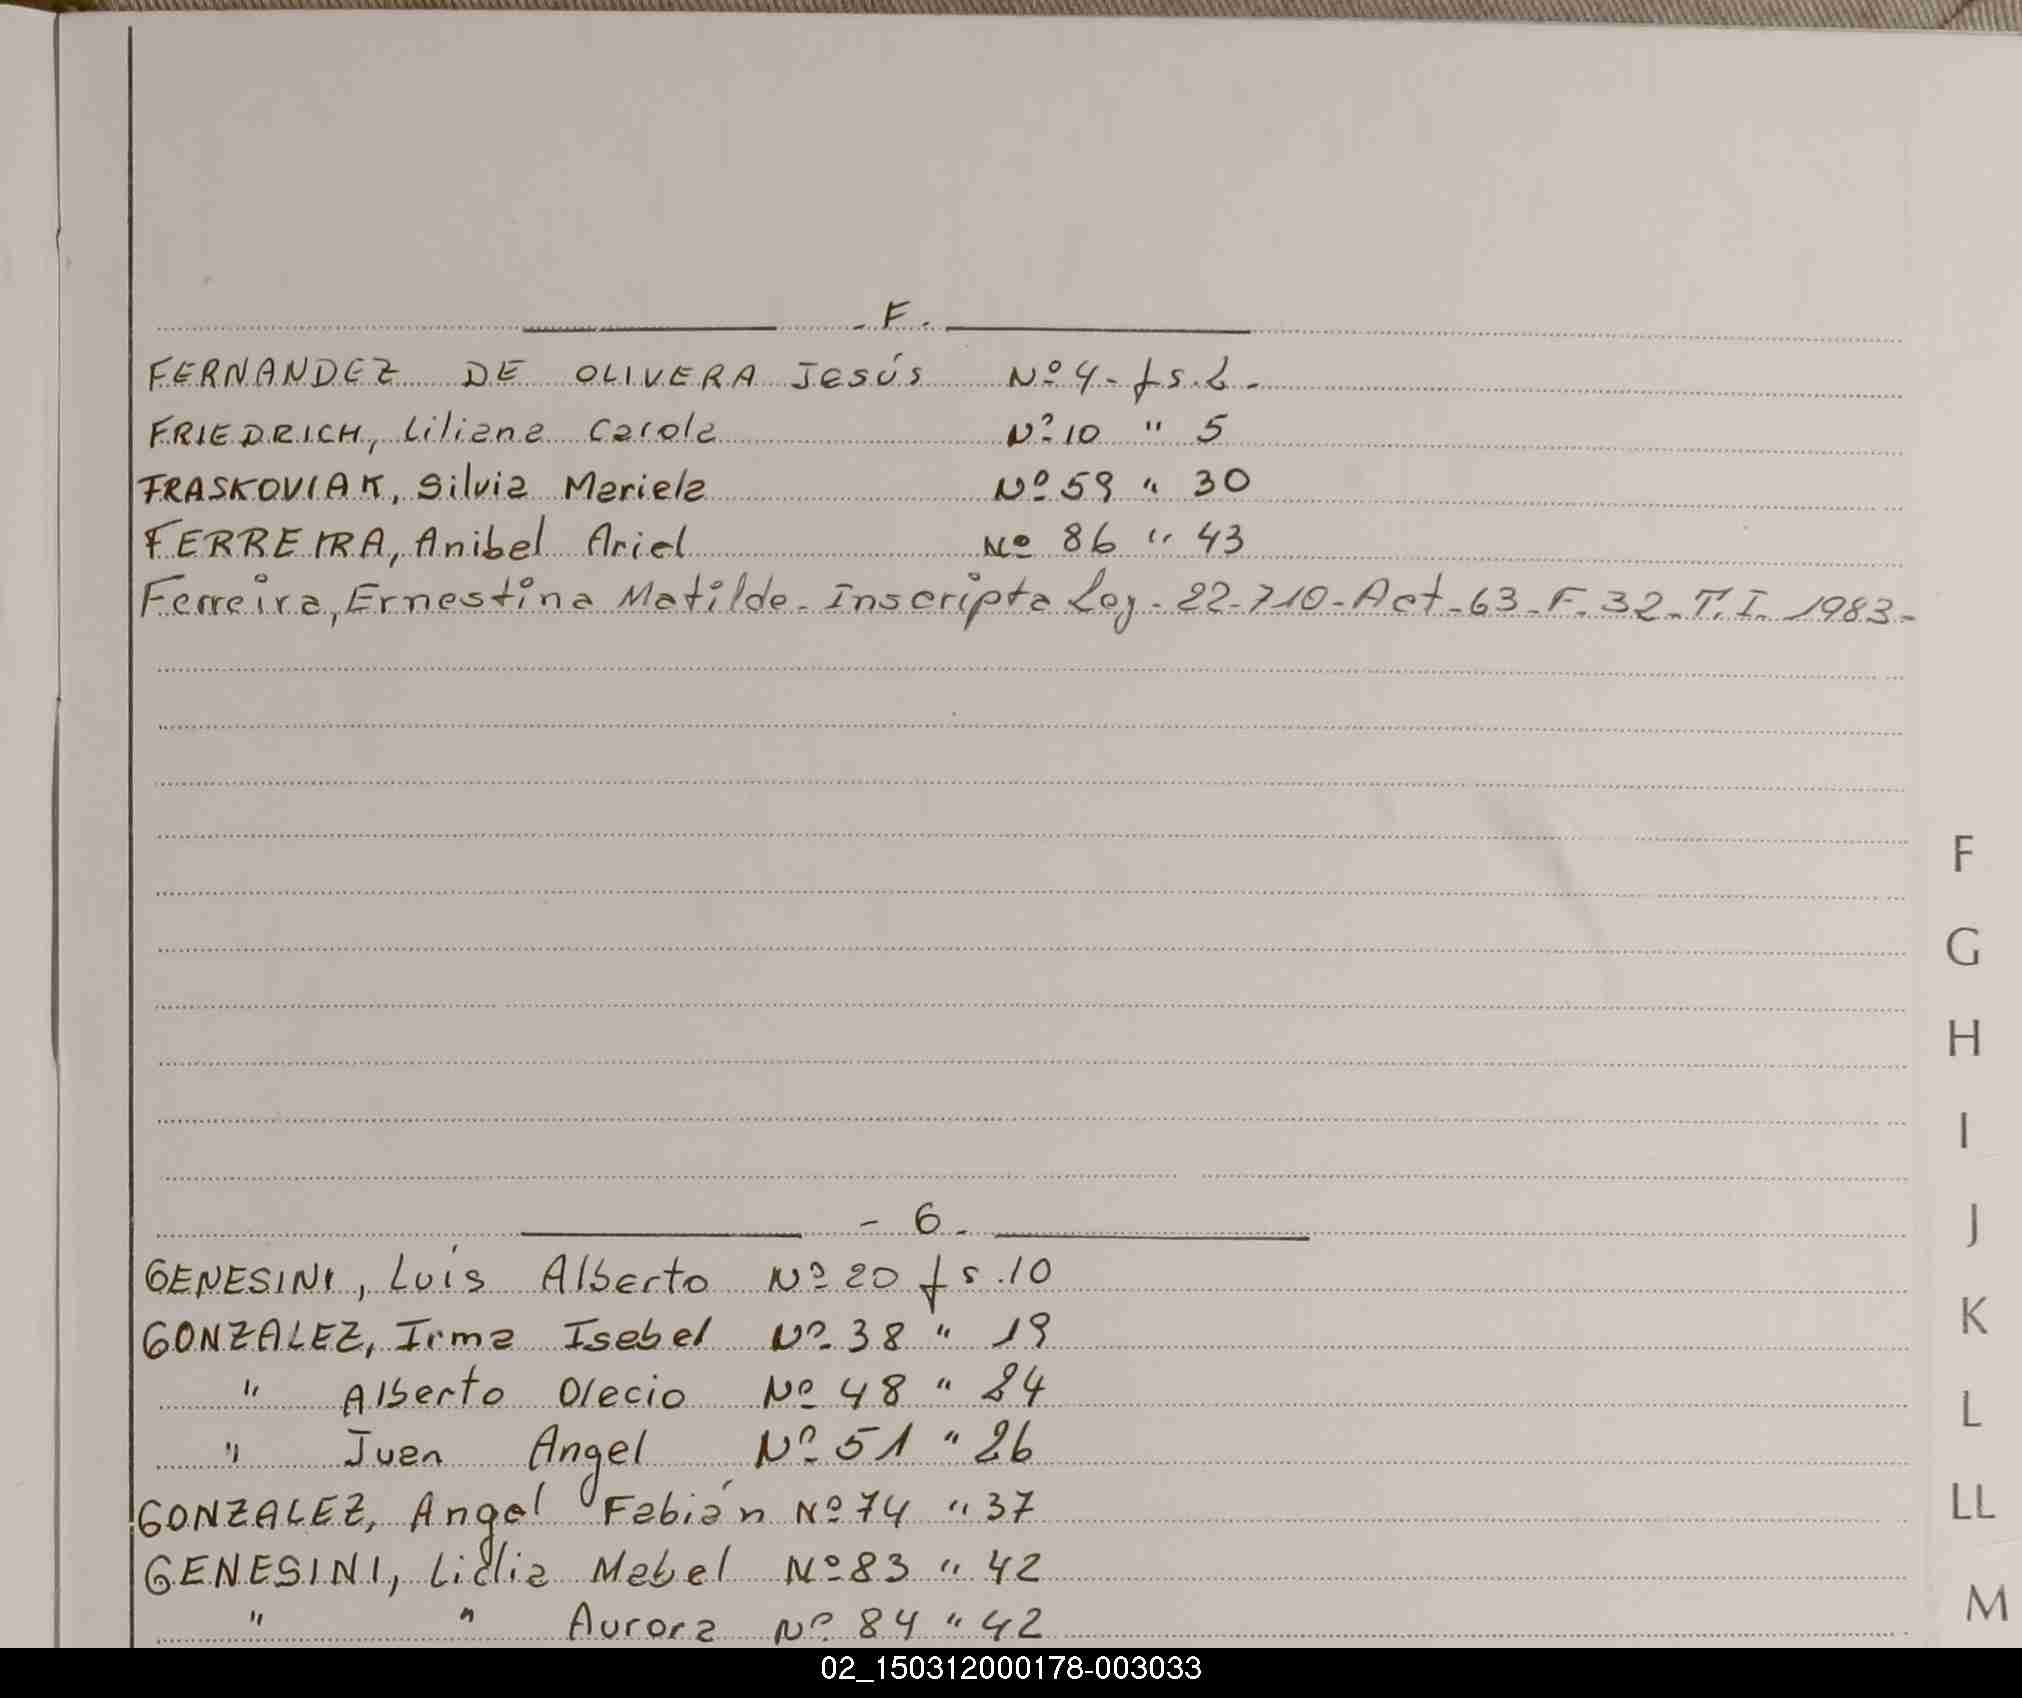 - F.
FERNANDEZ DE OLIVERA Jesús Nº 4 - fs. 2 -
FRIEDRICH, Liliana Carola Nº 10 " 5
FRASKOVIAK, Silvia Mariela Nº 59 " 30
FERREIRA, Anibal Ariel Nº 86 " 43
Ferreira, Ernestina Matilde - Inscripta Ley - 22-710 - Act - 63 - F. 32 - T. I. 1983 -
F
G
H
I
J
K
L
LL
M
- G -
GENESINI, Luis Alberto Nº 20 fs. 10
GONZALEZ, Irma Isabel Nº 38 " 19
" Alberto Olecio Nº 48 " 24
" Juan Angel Nº 51 " 26
GONZALEZ, Angel Fabián Nº 74 " 37
GENESINI, Lidia Mabel Nº 83 " 42
" " Aurora Nº 84 " 42
02_150312000178-003033